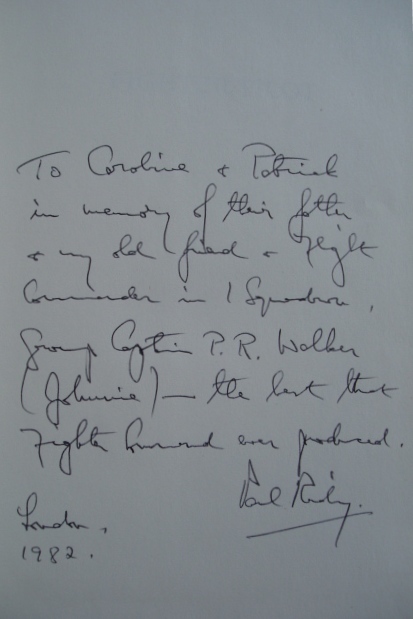 To Caroline & Patrick
in memory of their father
& my old friend & Flight
Commander in 1 Squadron,
Group Captain P.R. Walker
(Johnnie) — the best that
Fighter Command ever produced.
Paul Richey.
London,
1982.